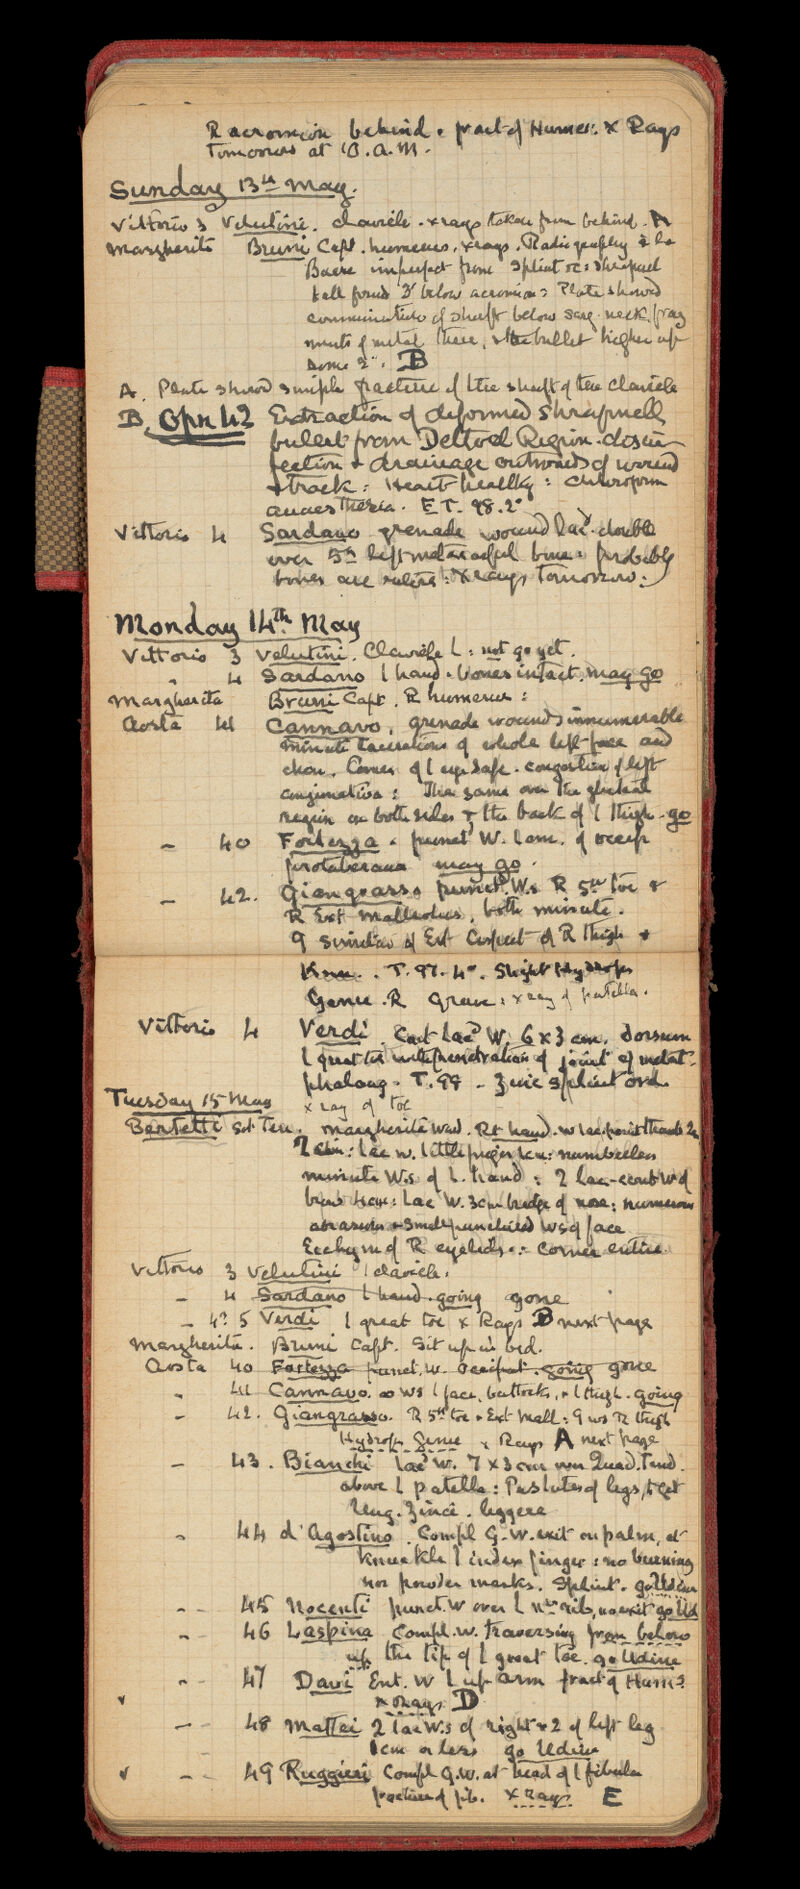 R acromion behind. fract of Humer. X Rays
Tomorrow at 10. A.M.
Sunday 13th May.
Vittorio 3 Velutini. clavicle. x rays taken from behind. A
Margherita Bruni Capt. humerus. x rays. Radiography à la
Baere imperfect from splint &c: shrapnel
ball found 3" below acromion: Plate showed
comminution of shaft below surg. neck, frag
ments of metal there, & the bullet higher up
some 2". B
A. Plate showed simple fracture of the shaft of the clavicle
B. Opn 42 Extraction of deformed shrapnell
bullet from Deltoid Region. disin
fection & drainage outwards of wound
& track: Heart healthy: chloroform
anaesthesia. E.T. 98.2°
Vittorio 4 Sardano grenade wound lacd. double
over 5th left metacarpal bone: probably
bones are entire: X rays tomorrow.
Monday 14th May
Vittorio 3 Velutini. Clavicle L: not go yet.
" 4 Sardano l hand. bones intact. may go
Margherita Bruni Capt. R humerus:
Aosta 41 Cannavo, grenade wounds innumerable
minute lacerations of whole left face and
chin. Cornea of l eye safe. congestion of left
conjunctiva: The same over the gluteal
region on both sides & the back of l thigh. go
- 40 Fortezza. punct. W. 1 cm. of occip
protuberance may go.
- 42. Giangrasso punctd. Ws R 5th toe &
R Ext Malleolus, both minute.
9 similar of Ext aspect of R thigh &
Knee. T. 97.4°. Slight Hydrops
Genu. R Grave: x ray of patella.
Vittorio 4 Verdi. Cont Lacd W. 6 x 3 cm. dorsum
l great toe with penetration of joint of metat-
phalang. T. 99 - Zinc splint ord.
Tuesday 15 May x ray of toe
Bertetti Sot Ten. Margherita Ward. Rt hand. W lac. point thumb 2
2 cm: Lac w. little finger 1 cm: numberless
minute Ws of L. hand: 2 lac-cont W of
brow 4 cm: Lac W. 3 cm bridge of nose: numerous
abrasions & small punctured Ws of face
Ecchym of R eyelids: Cornea entire.
Vittorio 3 Velutini l clavicle.
- 4 Sardano l hand. going gone
- 4? 5 Verdi l great toe x Rays B next page
Margherita. Bruni Capt. Sit up in bed.
Aosta 40 Fortezza punct. W. Occiput. going gone
" 41 Cannavo. ∞ Ws l face, buttocks, & l thigh. going
- 42. Giangrasso. R 5th toe & Ext Mall: 9 ws R thigh
Hydrops Genu x Rays A next page
- 43. Bianchi lacd W. 7 x 3 cm Quad. Tend.
above l patella: Pustules of legs,
Ung. Zinci. leggera
" 44 d'Agostino Compl G.W. exit on palm, at
knuckle l index finger: no burning
nor powder marks. Splint. go Udine
- - 45 Nocenti punct. W over L rib, no exit go Ud
" - 46 Laspina Compl. W. traversing from below
up the tip of l great toe. go Udine
" - 47 Davi Ent. W l up arm fract of Hums
x rays D
- - 48 Mattei 2 lac Ws of right & 2 of left leg
1 cm or less go Udine
- - 49 Ruggieri Compl G.W. at head of l fibula
fractured fib. x rays E